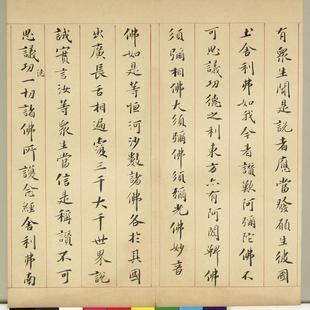 有衆生聞是説者應當發願生彼國
土舍利弗如我今者讃歎阿彌陀佛不
可思議功德之利東方亦有阿閦鞞佛
須彌相佛大須彌佛須彌光佛妙音
佛如是等恒河沙數諸佛各於其國
出廣長舌相遍覆三千大千世界説
誠實言汝等衆生當信是稱讃不可
思議功德一切諸佛所護念經舍利弗南